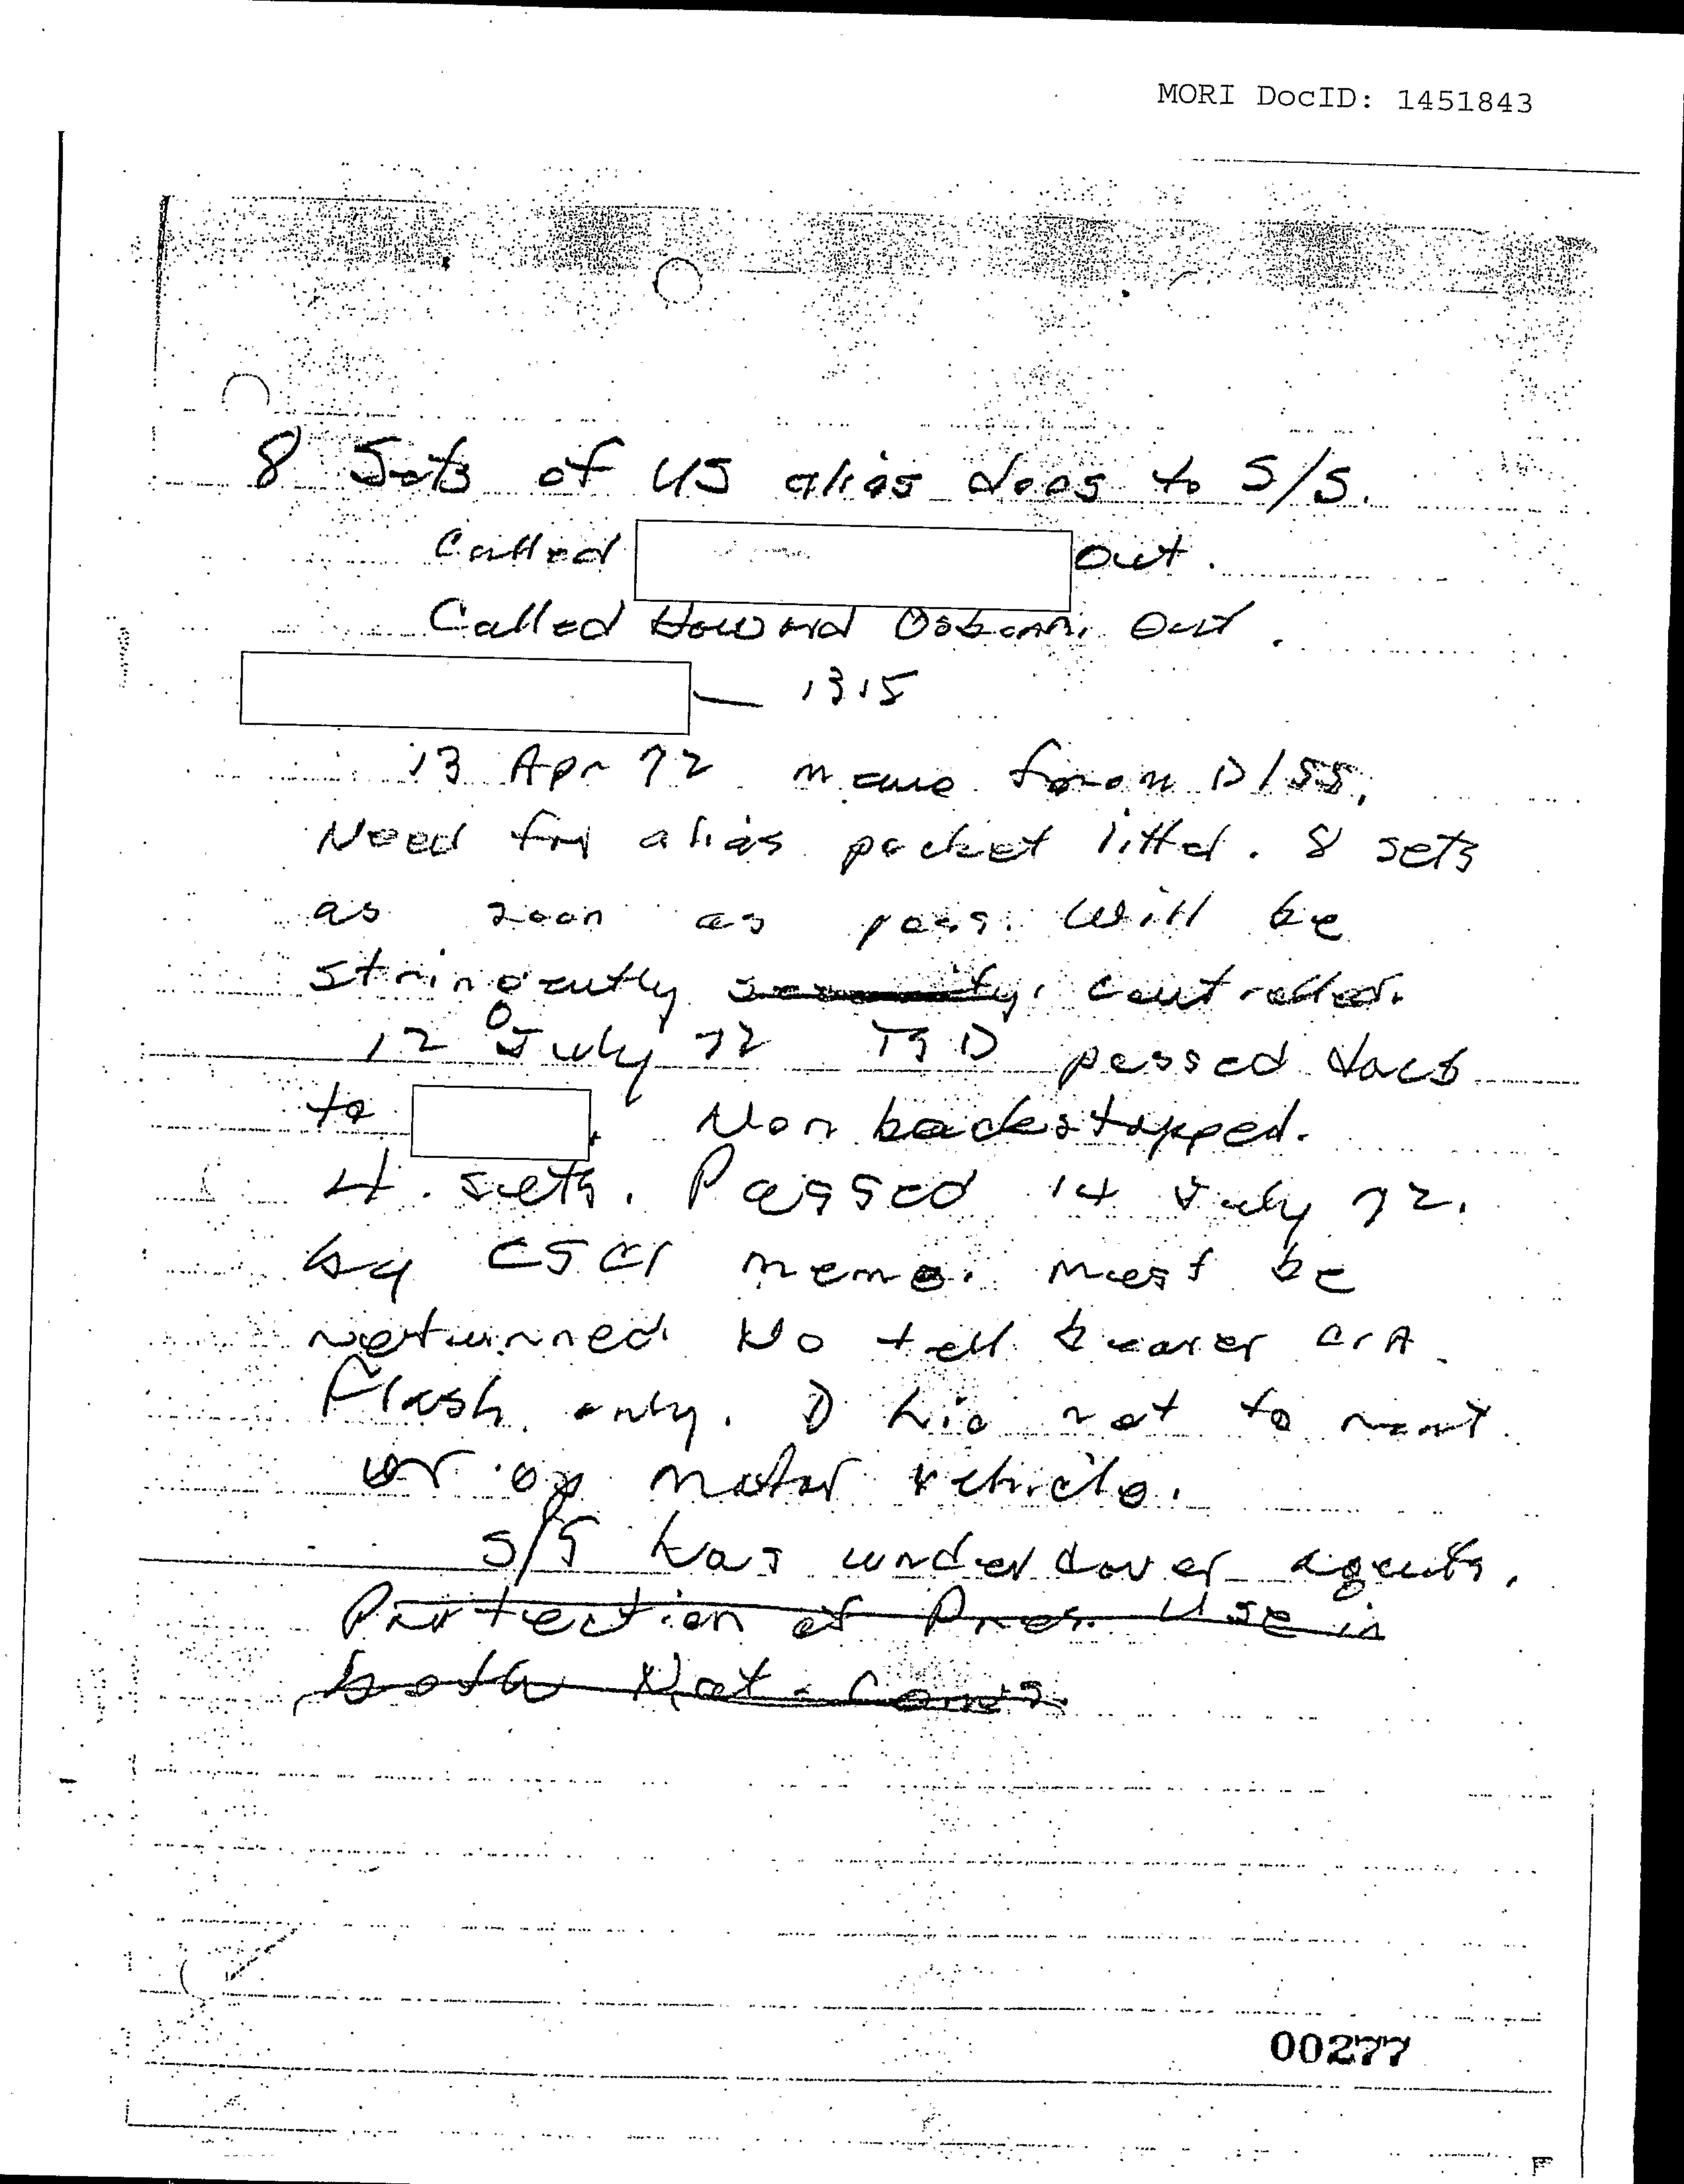 MORI DocID: 1451843
8 Sets of US alias docs to S/S.
Called out.
Called Howard Osborn, out.
— 1315
13 Apr 72 memo from D/SS.
Need for alias pocket litter. 8 sets
as soon as poss. Will be
stringently security controlled.
12 July 72 TSD passed docs
to . Non backstopped.
4 sets. Passed 14 July 72.
by CSCI memo. Must be
returned. No tell bearer CIA.
Flash only. D lic not to rent
or op motor vehicle.
S/S has undercover agents.
Protection of Pres. Use in
both Nat. Conv's.
00277